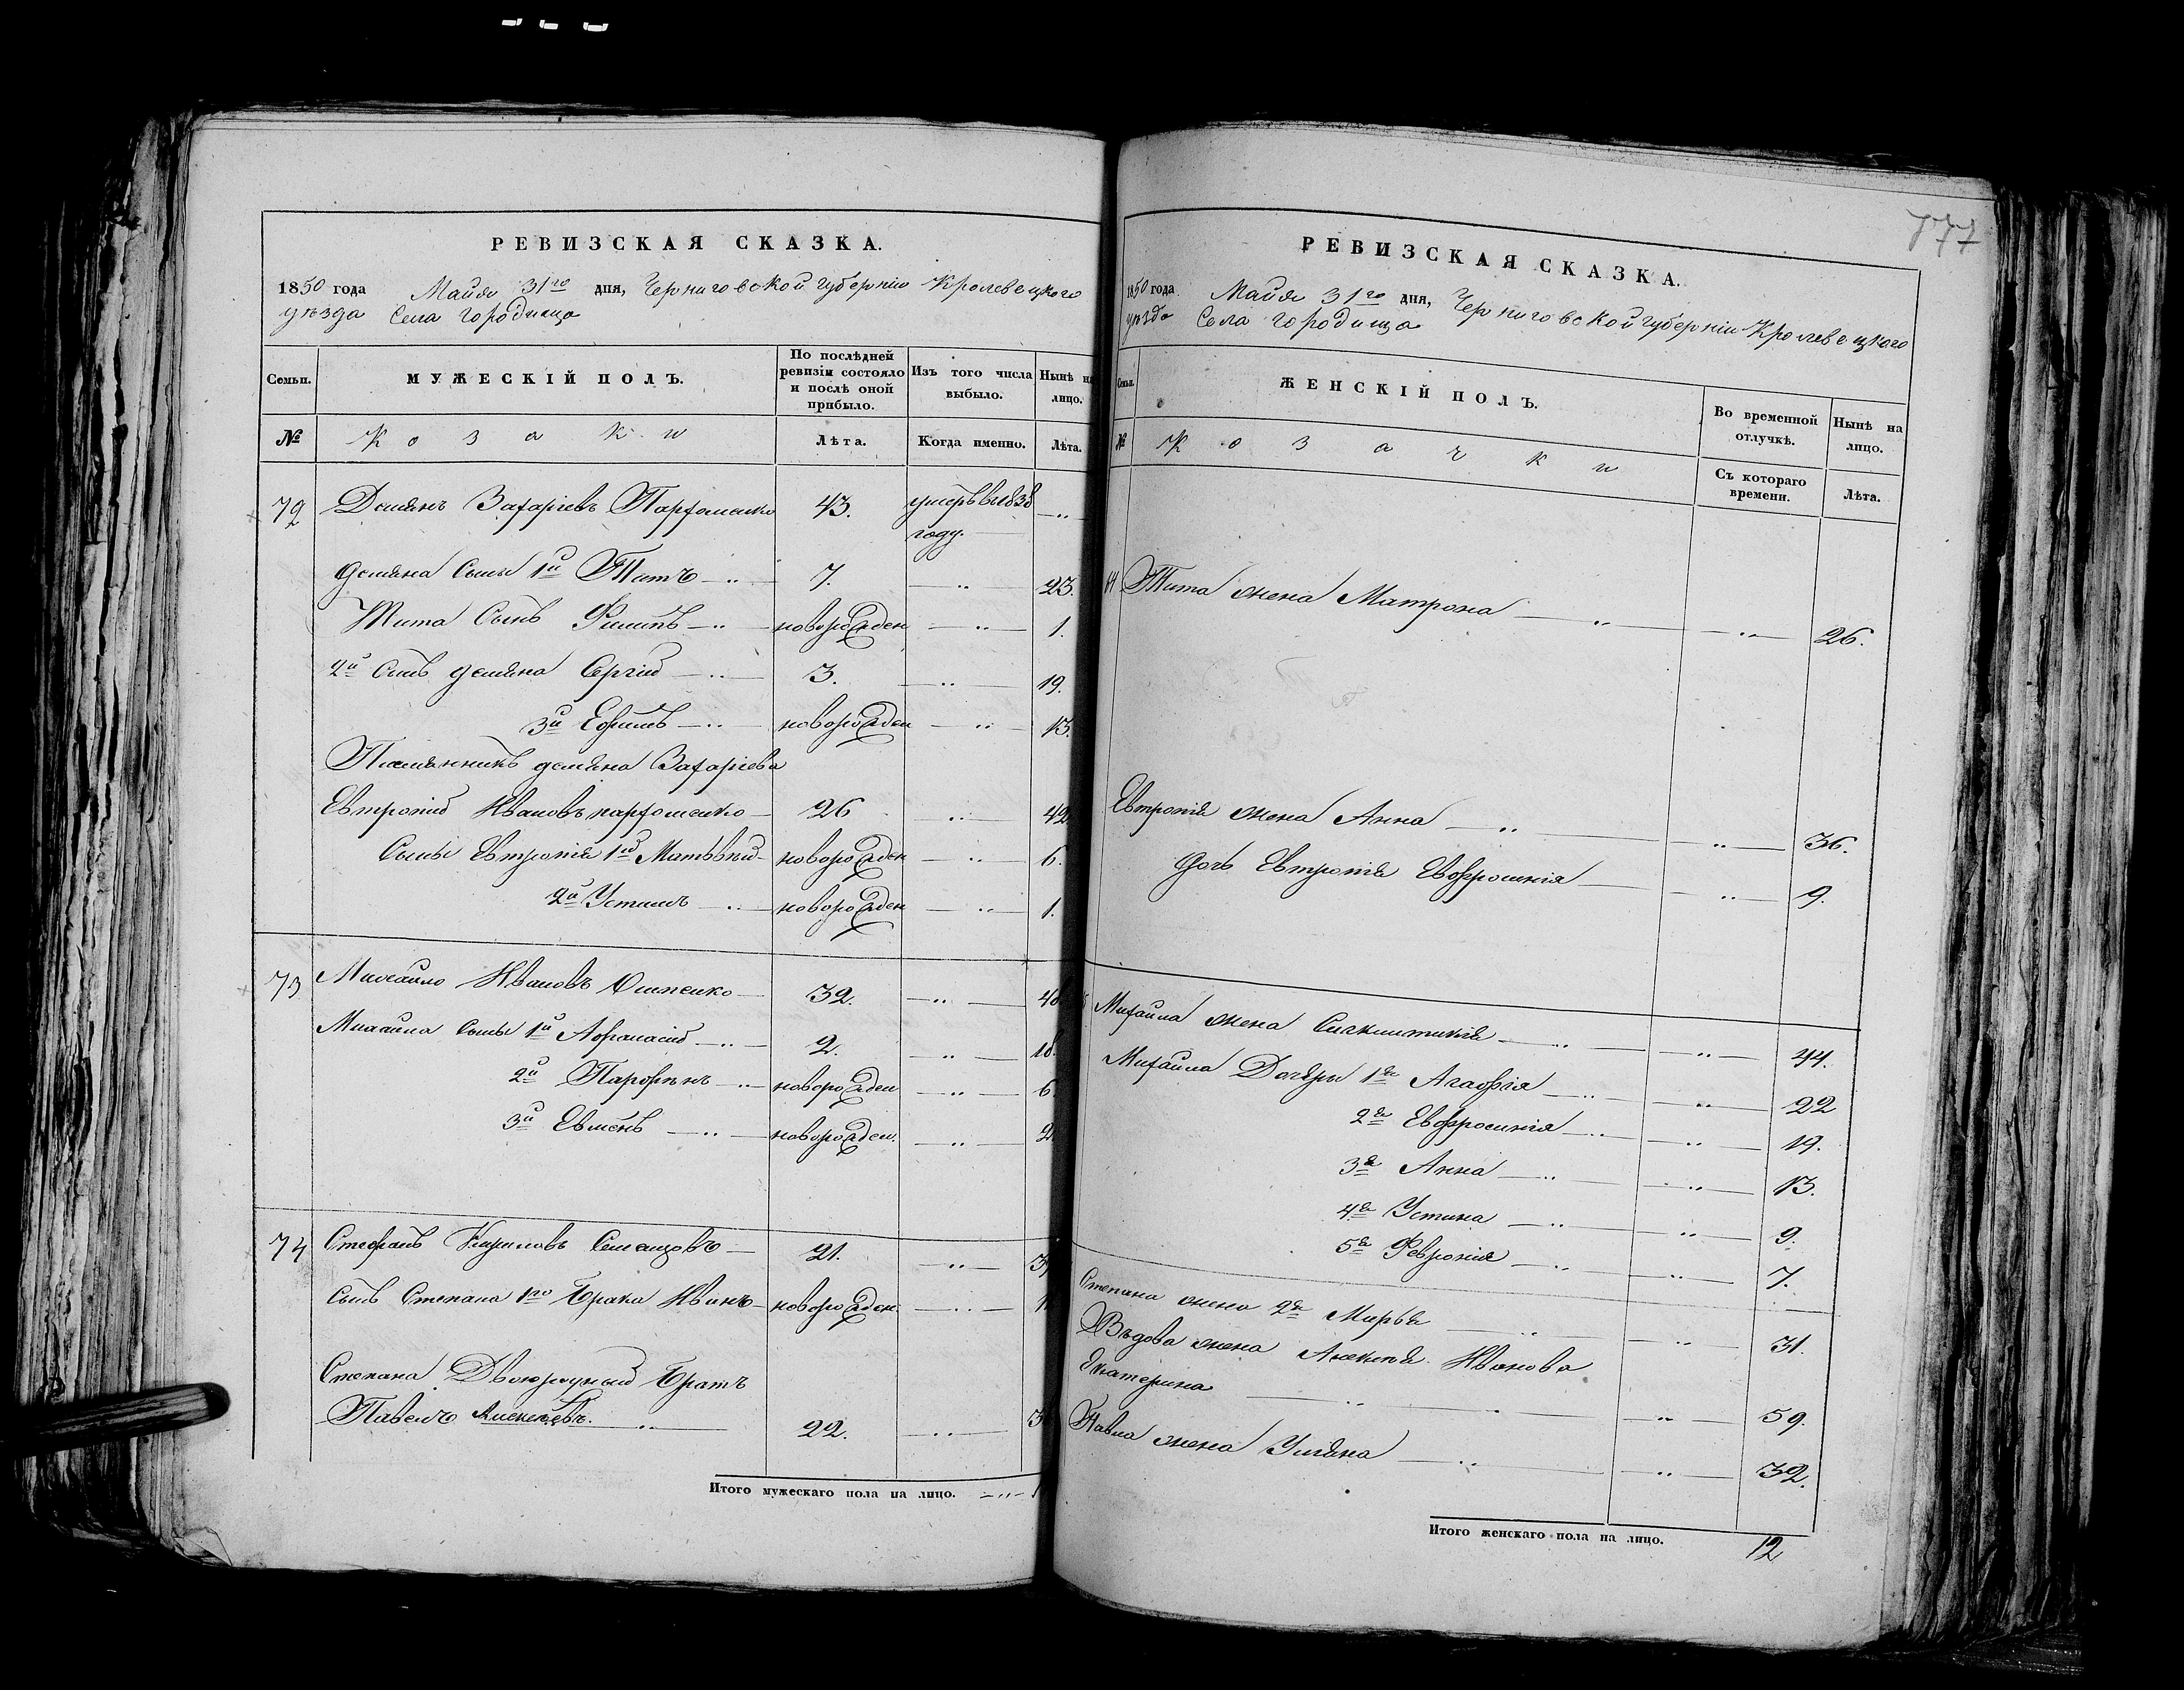 РЕВИЗСКАЯ СКАЗКА.
1850 года Майя 31го дня, Черниговской губернии Кролевецкого
уѣзда Села Городища
Семьи. МУЖЕСКІЙ ПОЛЪ. По послѣдней ревизіи состояло и послѣ оной прибыло. Изъ того числа выбыло. Нынѣ на лицо.
№ Козаки Лѣта. Когда именно. Лѣта.
72 Демянъ Захаріевъ Парфоменко 43. умеръ въ 1838 „
году.
Демяна Сыны 1й Титъ „ 7. „ 23.
Тита Сынъ Филипъ „ новорожден „ 1.
2й Сынъ Демяна Сергій „ 3. „ 19.
3й Ефимъ „ новорожден „ 13.
Племянникъ Демяна Захаріева
Евтропій Ивановъ Парфоменко 26 „ 42
Сыны Евтропія 1й Матвѣй новорожден „ 6.
2й Устимъ „ новорожден „ 1.
73 Михайло Ивановъ 32. „ 48
Михайла Сыны 1й Афанасій „ 2. „ 18.
2й Парфѣнъ „ новорожден „ 6
3й Евменъ „ новорожден. „ 2
74 Стефанъ Кириловъ 21. „ 3
Сынъ Степана 1го брака Иванъ новорожден. „ 1
Степана Двоюродный братъ
Павелъ „ 22. „ 3
Итого мужескаго пола на лицо. „ 1
777
РЕВИЗСКАЯ СКАЗКА.
1850 года Майя 31го дня, Черниговской губерніи Кролевецкого
уѣзда Села Городища
Семьи. ЖЕНСКІЙ ПОЛЪ. Во временной отлучкѣ. Нынѣ на лицо.
№ Козачки Съ котораго времени. Лѣта.
Тита жена Матрона „ „ 26.
Евтропія жена Анна „ „ 36.
Дочь Евтропія Евфросинія „ 9.
Михайла жена Синклитикія „ „ 44.
Михайла Дочери 1я Агафія „ „ 22
2я Евфросинія „ „ 19.
3я Анна „ „ 13.
4я Устина „ „ 9.
5я Феврония „ „ 7.
Степана жена 2я Марья „ „ 31.
Вдова жена Ивановa
Екатерина „ „ „ 59.
Павла жена Уліяна „ „ 32.
Итого женскаго пола на лицо. 12